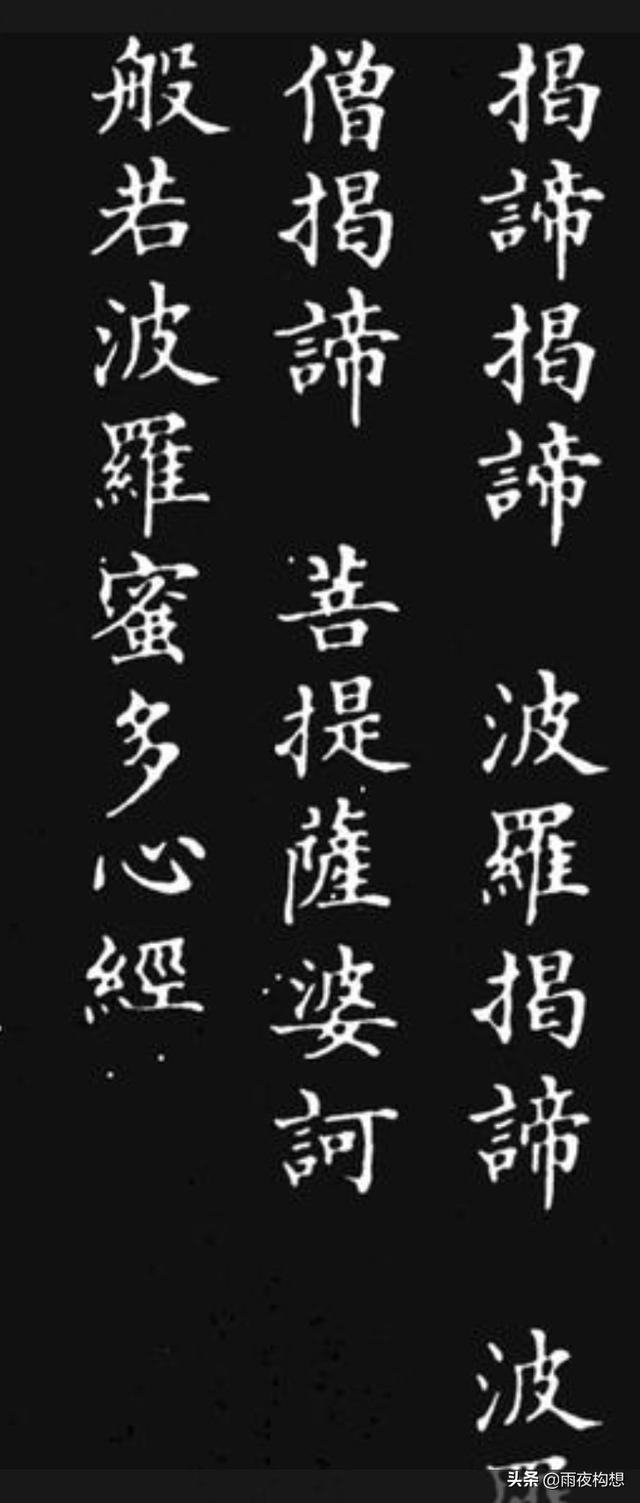 揭諦揭諦 波羅揭諦 波羅
僧揭諦 菩提薩婆訶
般若波羅蜜多心經
头条 @雨夜构想